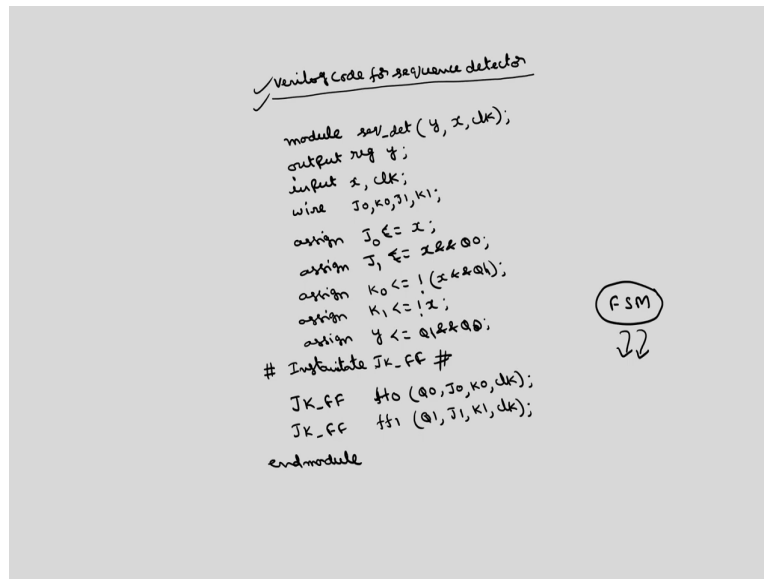 verilog code for sequence detector
module seq_det ( y, x, clk);
output reg y;
input x, clk;
wire J0,K0,J1,K1;
assign J0 <= x;
assign J1 <= x&&Q0;
assign K0 <= !(x&&Q1);
assign K1 <= !x;
assign y <= Q1&&Q0;
FSM
# Instantitate JK_FF #
JK_FF ff0 (Q0,J0,K0,clk);
JK_FF ff1 (Q1,J1,K1,clk);
endmodule